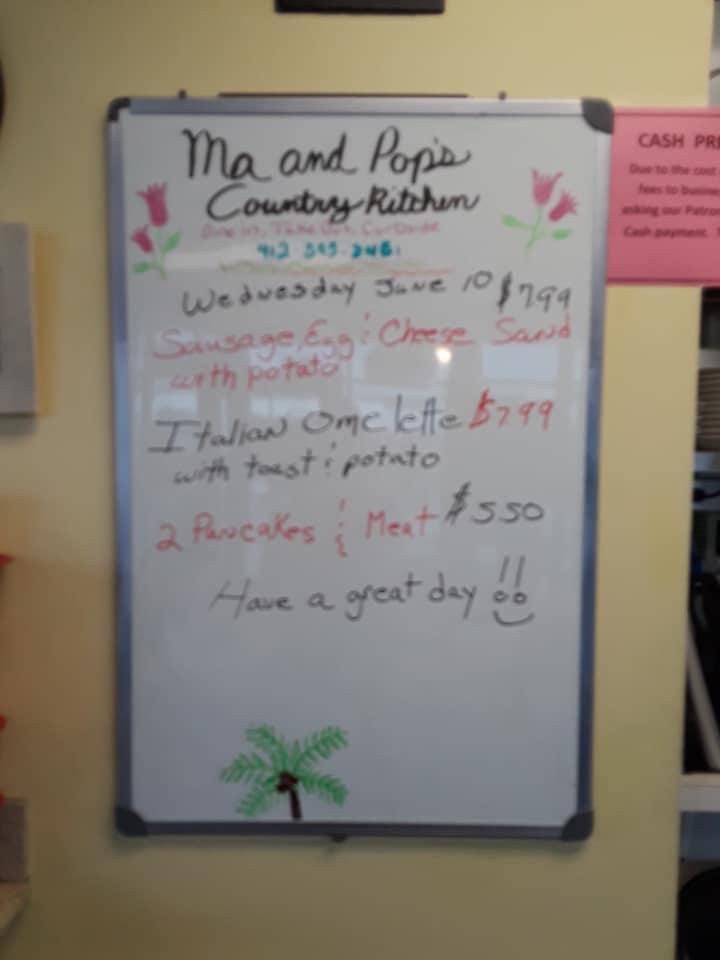 Ma and Pop's
Country Kitchen
Dine in, Take Out, Curbside
Wednesday June 10 $799
Sausage, Egg & Cheese Sand
with potato
Italian Omelette $799
with toast & potato
2 Pancakes & Meat $550
Have a great day !!
CASH PRE
Due to the cost
fees to busine
asking our Patro
Cash payment.